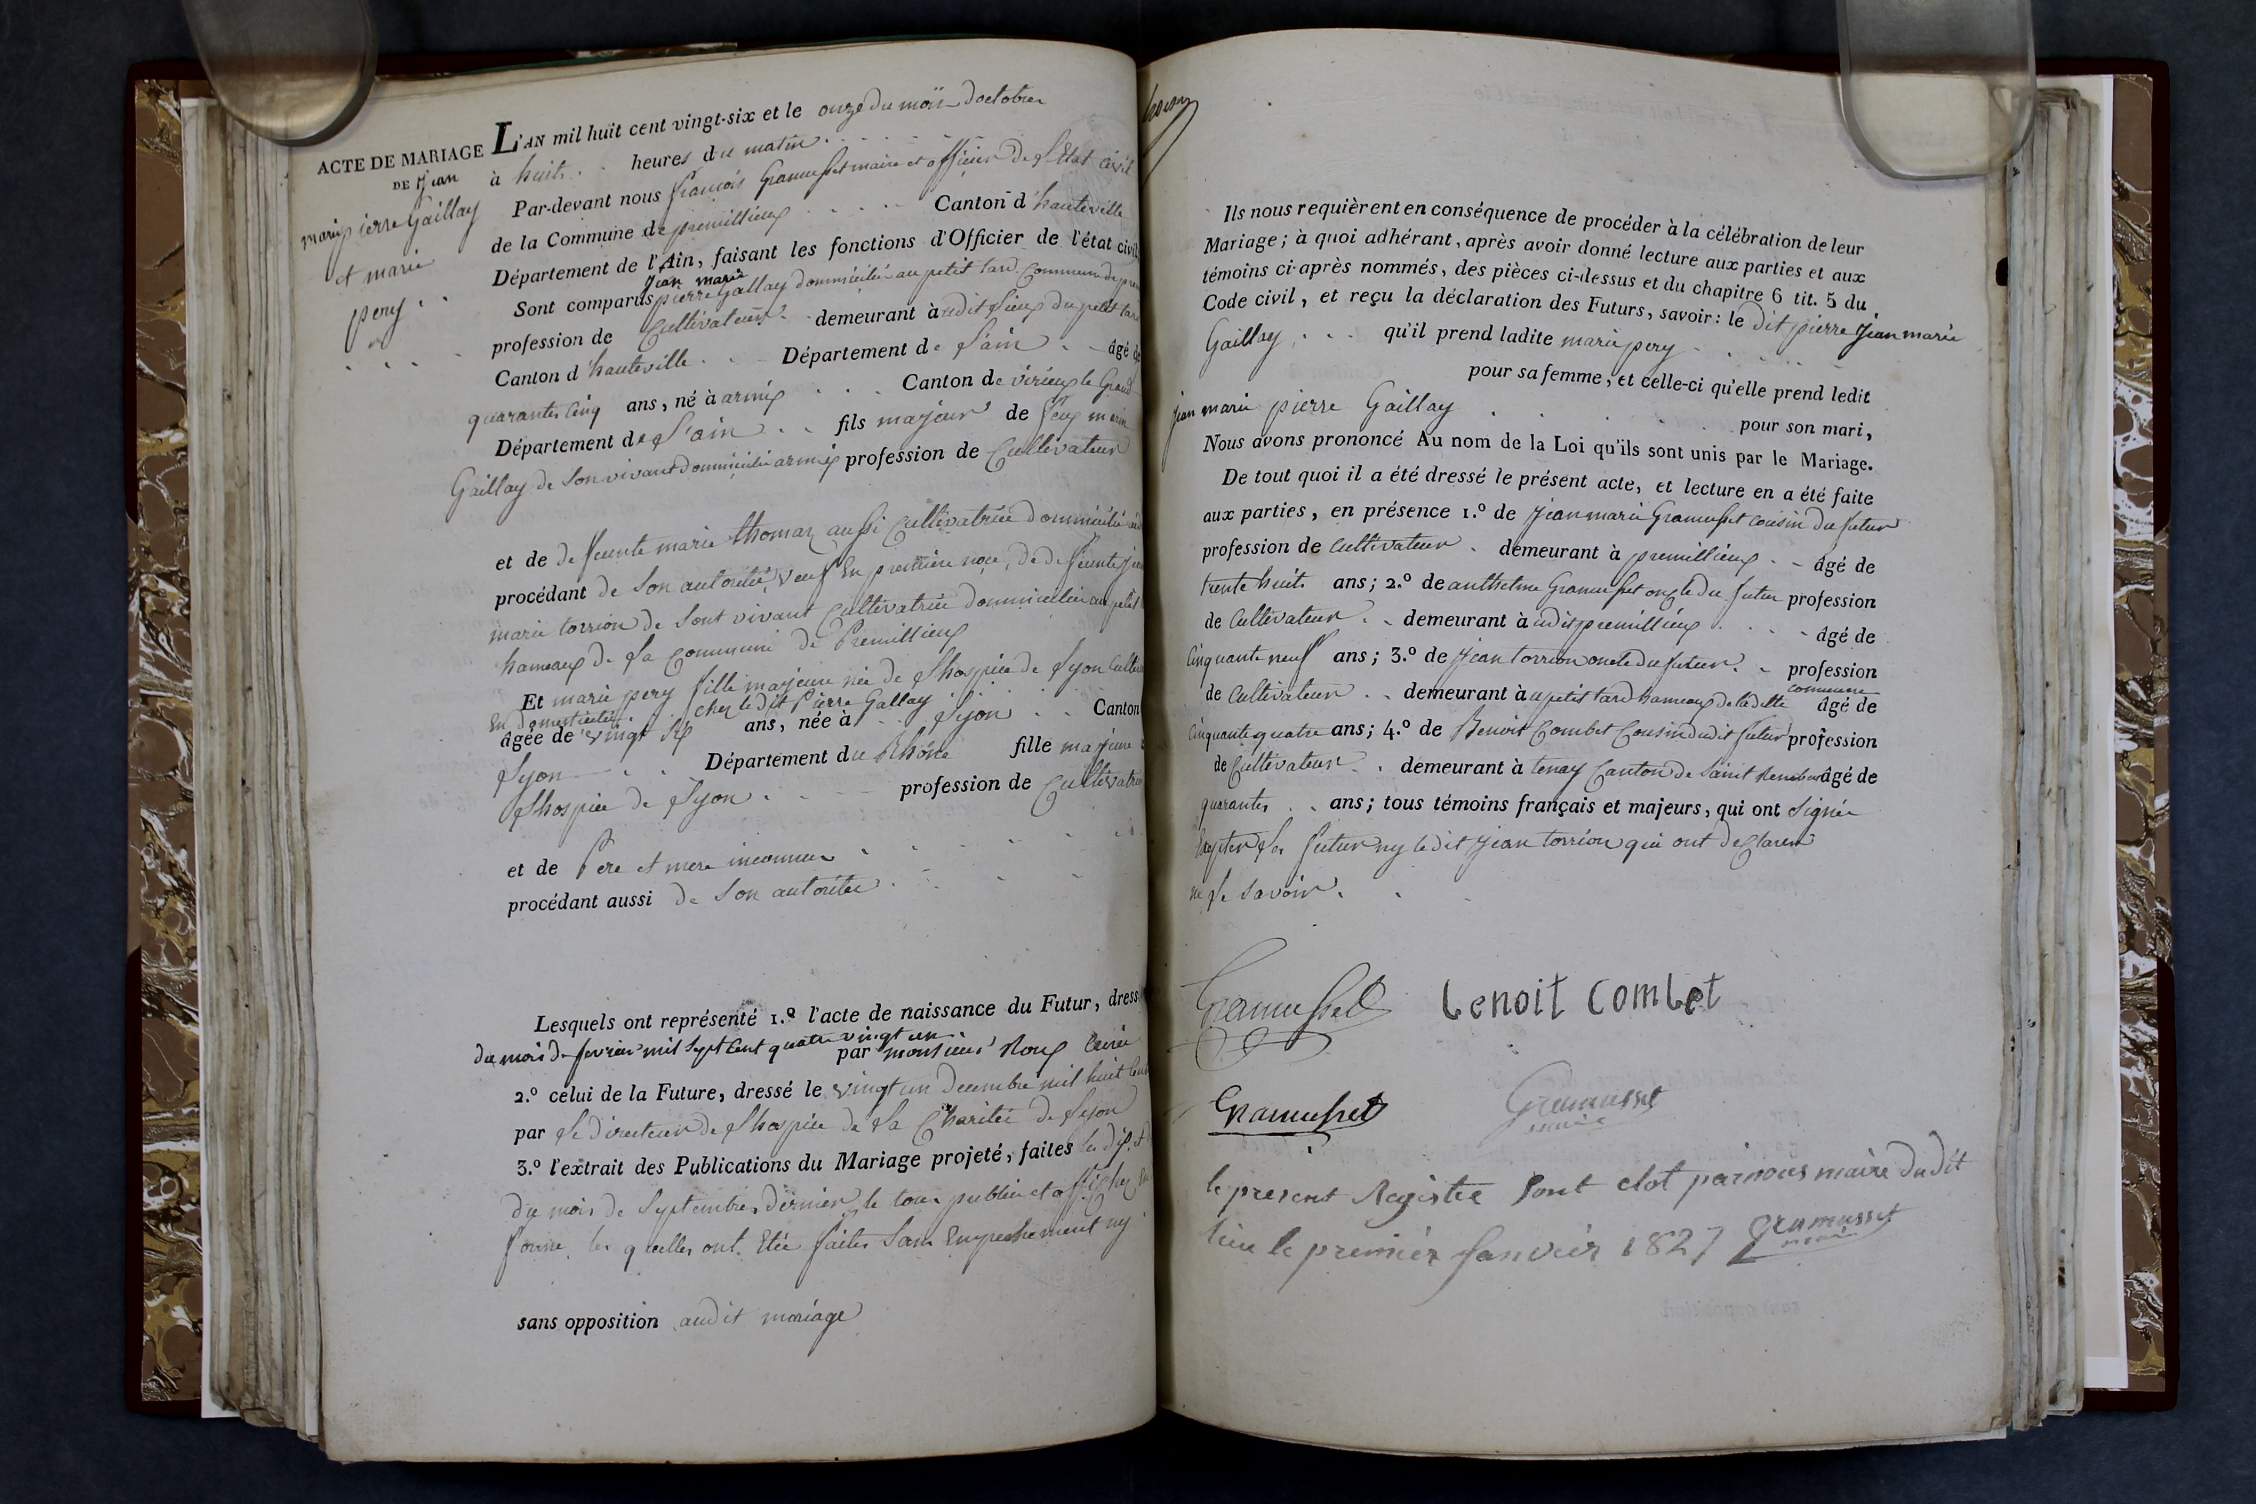 ACTE DE MARIAGE
DE Jean
marie pierre Gaillay
et marie
pery
L'AN mil huit cent vingt-six et le onze du mois doctobre
à huit heures du matin
Par-devant nous françois Gramusset maire et officier de l'Etat civil
de la Commune de premillieux Canton d'hauteville
Département de l'Ain, faisant les fonctions d'Officier de l'état civil
jean marie
Sont comparus pierre Gallay dommicilié au petit tard Commune de
profession de Cultivateur demeurant àudit Lieux du petit tard
Canton d'hauteville Département de Lain âgé de
quarantes Cinq ans, né à armix Canton de virieux le Grand
Département de L'ain fils majeur de feux
Gaillay de son vivant dommicilié armix profession de Cultivateur
et de defeunte marie thomaz aussi Cultivatrice dommicilié
procédant de Son autorité, veuf En premiere noce, de defeunte
marie torrion de Sont vivant Cultivatrice dommiciliée au petit
hameaux de La Commune de Premillieux
Et marie pery fille majeure née de Lhospice de Lyon
En domesticité chez ledit Pierre Gallay
âgée de vingt six ans, née à Lyon Canton
Lyon Département du Rhône fille majeure
Lhospice de Lyon profession de Cultivatrice
et de Pere et mere inconnue
procédant aussi de Son autorité
Lesquels ont représenté 1.º l'acte de naissance du Futur, dressé
du mois de fevrier mil Sept Cent quatre vingt un
par monsieur Roux Curée
2.º celui de la Future, dressé le vingt un decembre mil huit Cent
par Le directeur de Lhospice de La Charitée de Lyon
3.º l'extrait des Publications du Mariage projeté, faites les dix et
du mois de Septembre dernier le tous publiée et affichez
forme les quelles ont Etée faites Sans Empechement ny
sans opposition audit mariage
Ils nous requièrent en conséquence de procéder à la célébration de leur
Mariage; à quoi adhérant, après avoir donné lecture aux parties et aux
témoins ci-après nommés, des pièces ci-dessus et du chapitre 6 tit. 5 du
Code civil, et reçu la déclaration des Futurs, savoir: le dit pierre Jean marie
Gaillay qu'il prend ladite marie pery
pour sa femme, et celle-ci qu'elle prend ledit
jean marie pierre Gaillay pour son mari,
Nous avons prononcé Au nom de la Loi qu'ils sont unis par le Mariage.
De tout quoi il a été dressé le présent acte, et lecture en a été faite
aux parties, en présence 1.º de Jean marie Gramusset cousin du futur
profession de Cultivateur demeurant à premillieux âgé de
trente huit ans; 2.º de anthelme Gramusset oncle du futur profession
de Cultivateur demeurant à udit premillieux âgé de
Cinquante neuf ans; 3.º de Jean torrion oncle du futeur profession
de Cultivateur demeurant àu petit tard hameaux de ladite commune âgé de
Cinquante quatre ans; 4.º de Benoit Combet Cousin dudit futur profession
de Cultivateur demeurant à tenay Canton de Saint Rembert âgé de
quarantes ans; tous témoins français et majeurs, qui ont Signée
Exepter Les futur ny ledit Jean torrion qui ont declarer
ne Le savoir
Gramusset
benoit combet
Gramusset
Gramusset
maire
le present Registre Sont clot par nous maire dudit
lieu le premier Janvier 1827 Gramusset
maire